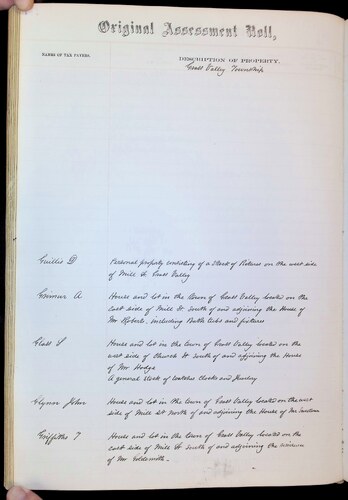 Original Assessment Roll,
NAMES OF TAX PAYERS.
DESCRIPTION OF PROPERTY.
Grass Valley Township
Guillie D Personal property consisting of a Stock of Fixtures on the west side
of Mill St Grass Valley
A House and lot in the town of Grass Valley located on the
east side of Mill St south of and adjoining the House of
Mr Roberts, including Bath tubs and fixtures
Glass S House and lot in the town of Grass Valley located on the
west side of Church St south of and adjoining the House
of Mr Hodge
A general stock of Watches Clocks and Jewelry
Glynn John House and lot in the town of Grass Valley located on the west
side of Mill St North of and adjoining the House of Mr
Griffiths T House and lot in the town of Grass Valley located on the
east side of Mill St south of and adjoining the residence
of Mr Goldsmith